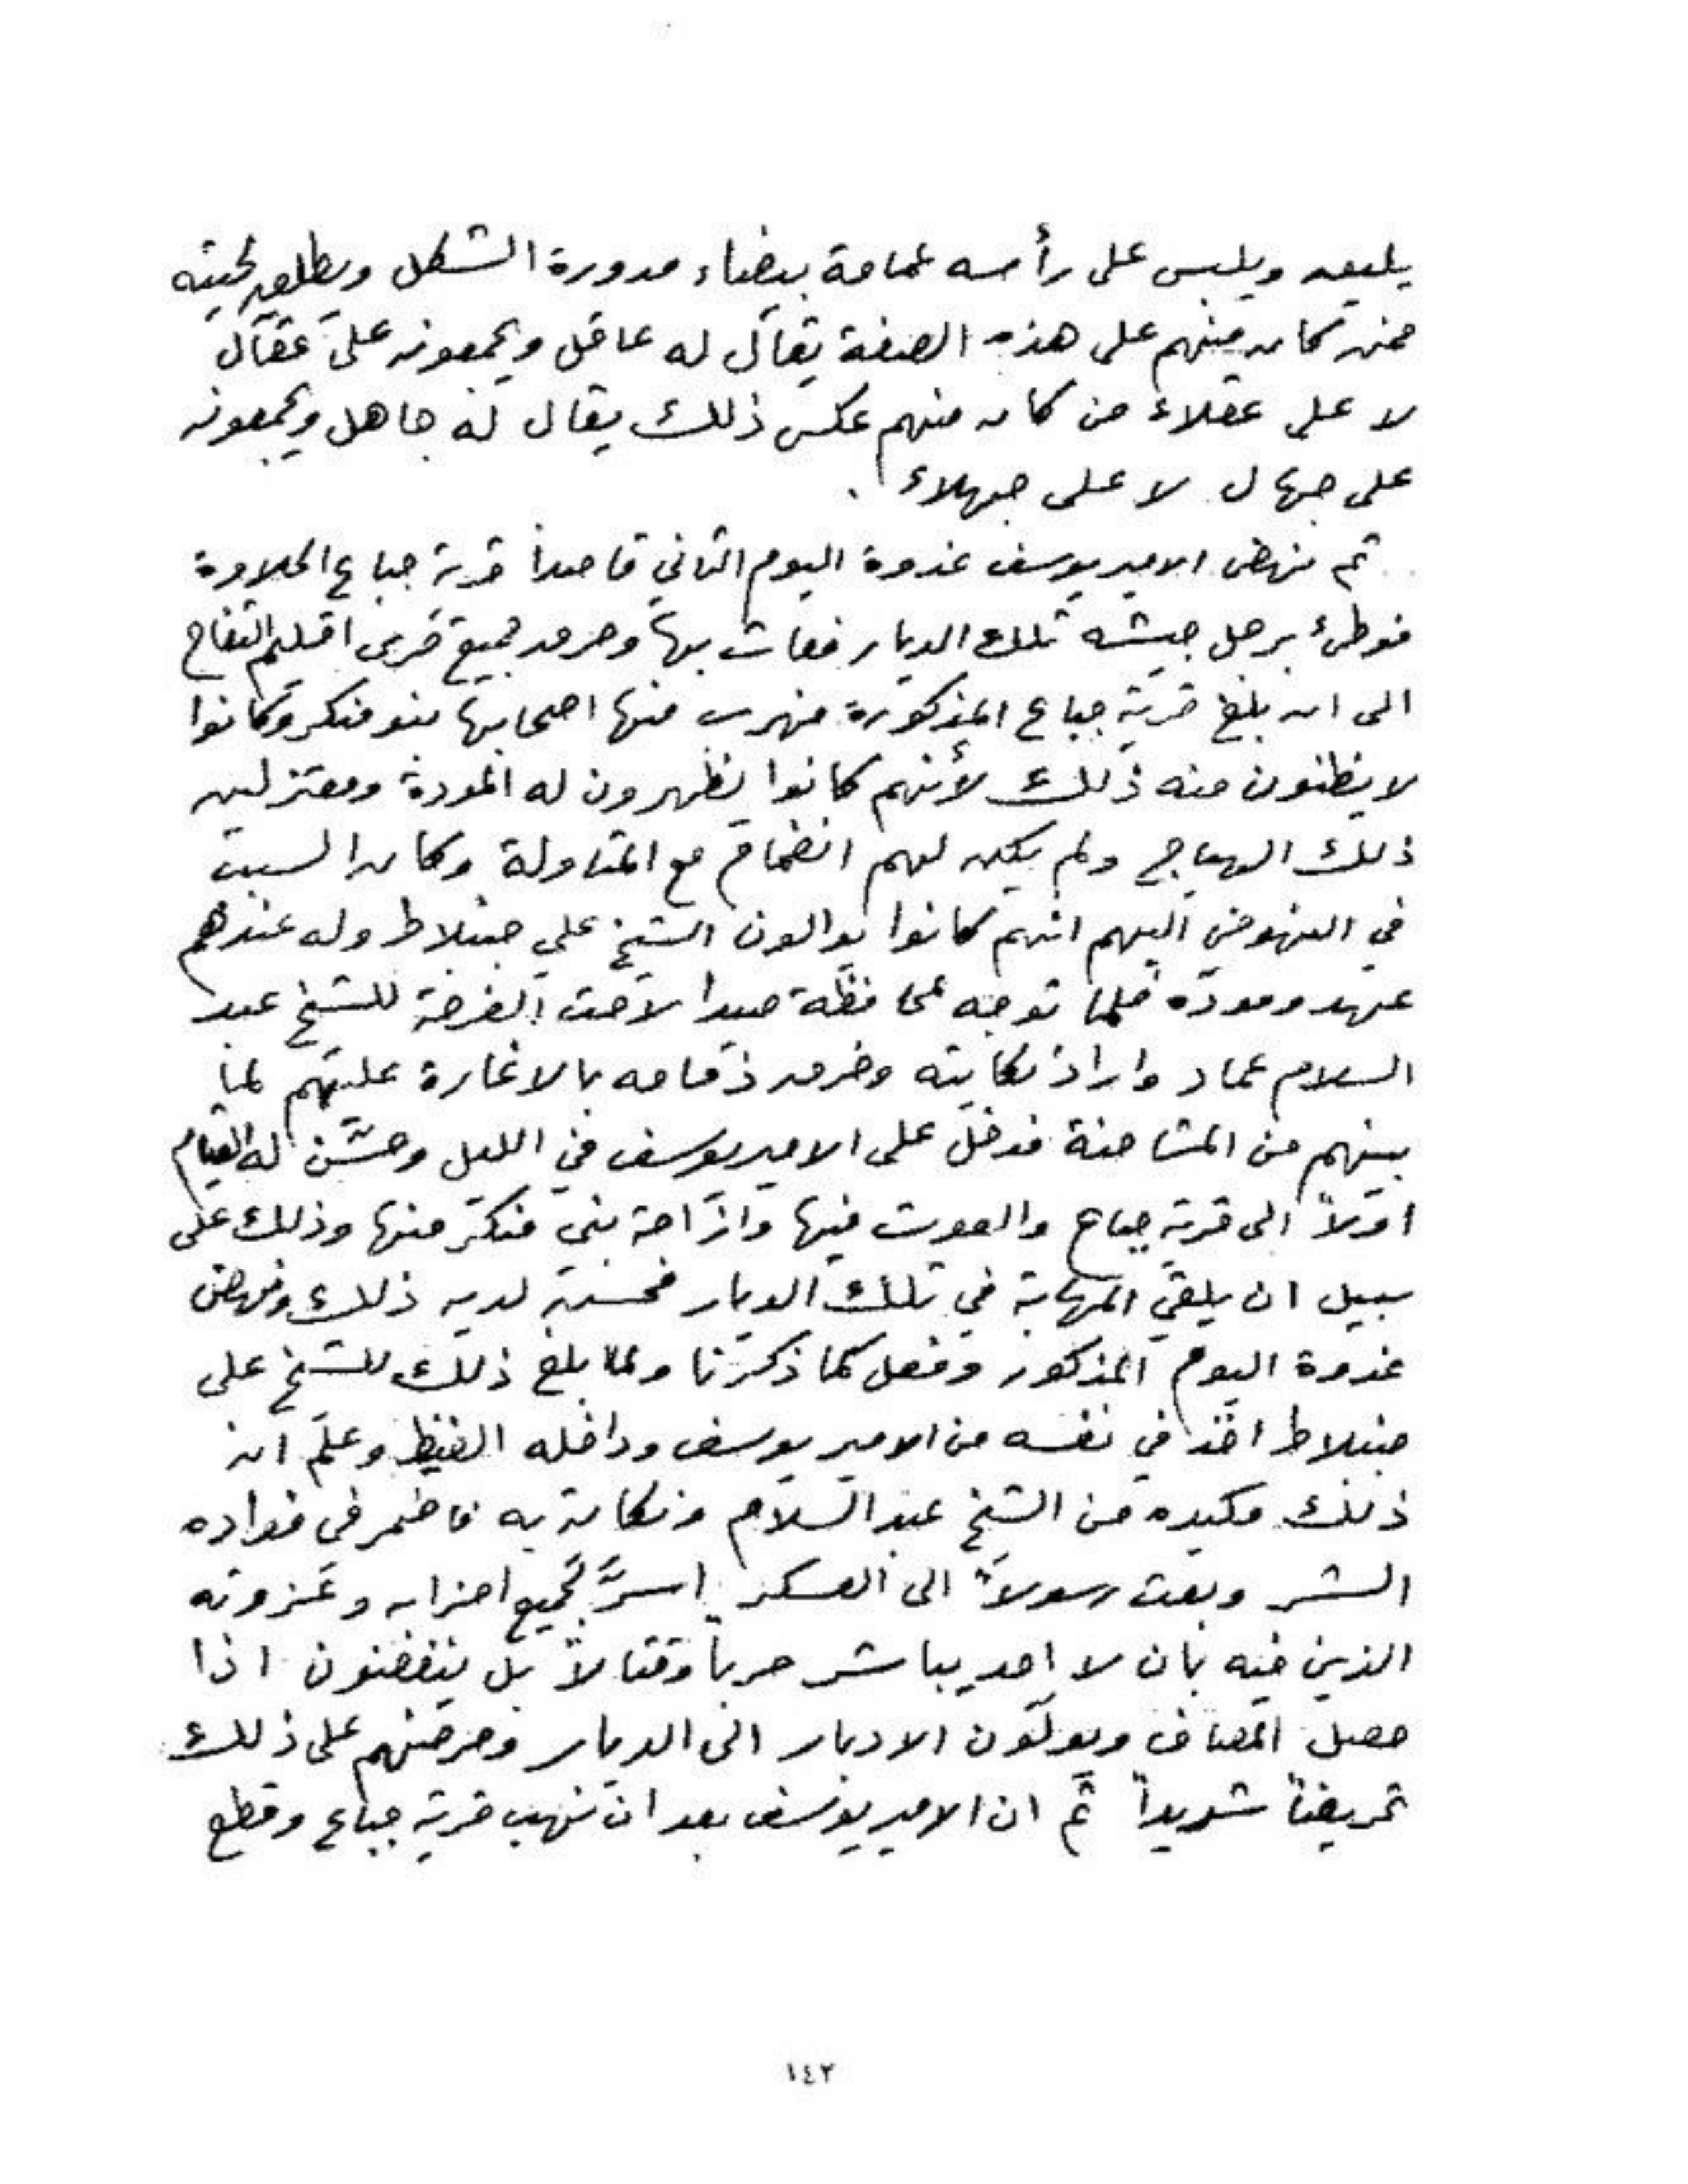 يليق ويلبس على رأسه عمامة بيضاء مدورة الشكل ويطلق لحيته
فمن كان منهم على هذه الصفة يقال له عاقل ويجمعونه على عقال
لا على عقلاء من كان منهم عكس ذلك يقال له جاهل ويجمعونه
على جهال لا على جهلاء .
ثم نهض الامير يوسف غدوة اليوم الثاني قاصداً قرية جباع الحلاوة
فوطئ برجل جيشه تلك الديار فعاث بها وحرق جميع قرى اقليم التفاح
الى ان بلغ قرية جباع المذكورة فهرب منها اصحابها بنو منكر وكانوا
لا يظنون منه ذلك لأنهم كانوا يظهرون له المودة ومعتزلين
ذلك الهياج ولم يكن لهم انضمام مع المتاولة وكان السبب
في النهوض اليهم انهم كانوا يوالون الشيخ علي جنبلاط وله عندهم
عهد ومودة فلما توجه لمحافظة صيدا لاحت الفرصة للشيخ عبد
السلام عماد واراد نكايته وخرق ذمامه بالاغارة عليهم لما
بينهم من المشاحنة فدخل على الامير يوسف في الليل وحسّن له القيام
اولاً الى قرية جباع والعوث فيها وازاحة بني منكر منها وذلك على
سبيل ان يلقي المهابة في تلك الديار فحسن لديه ذلك ونهض
غدوة اليوم المذكور وفعل كما ذكرنا ولما بلغ ذلك للشيخ علي
جنبلاط اخذ في نفسه من الامير يوسف وداخله الغيظ وعلم ان
ذلك مكيده من الشيخ عبد السلام ونكاية به فاضمر في فواده
الشر وبعث رسولاً الى العسكر اسرَّ لجميع احزابه وعزوته
الذين فيه بان لا احد يباشر حرباً وقتالاً بل ينفضون اذا
حصل المصاف ويولّون الادبار الى الديار وحرضهم على ذلك
تحريضاً شديداً ثم ان الامير يوسف بعد ان نهب قرية جباع وقطع
١٤٢